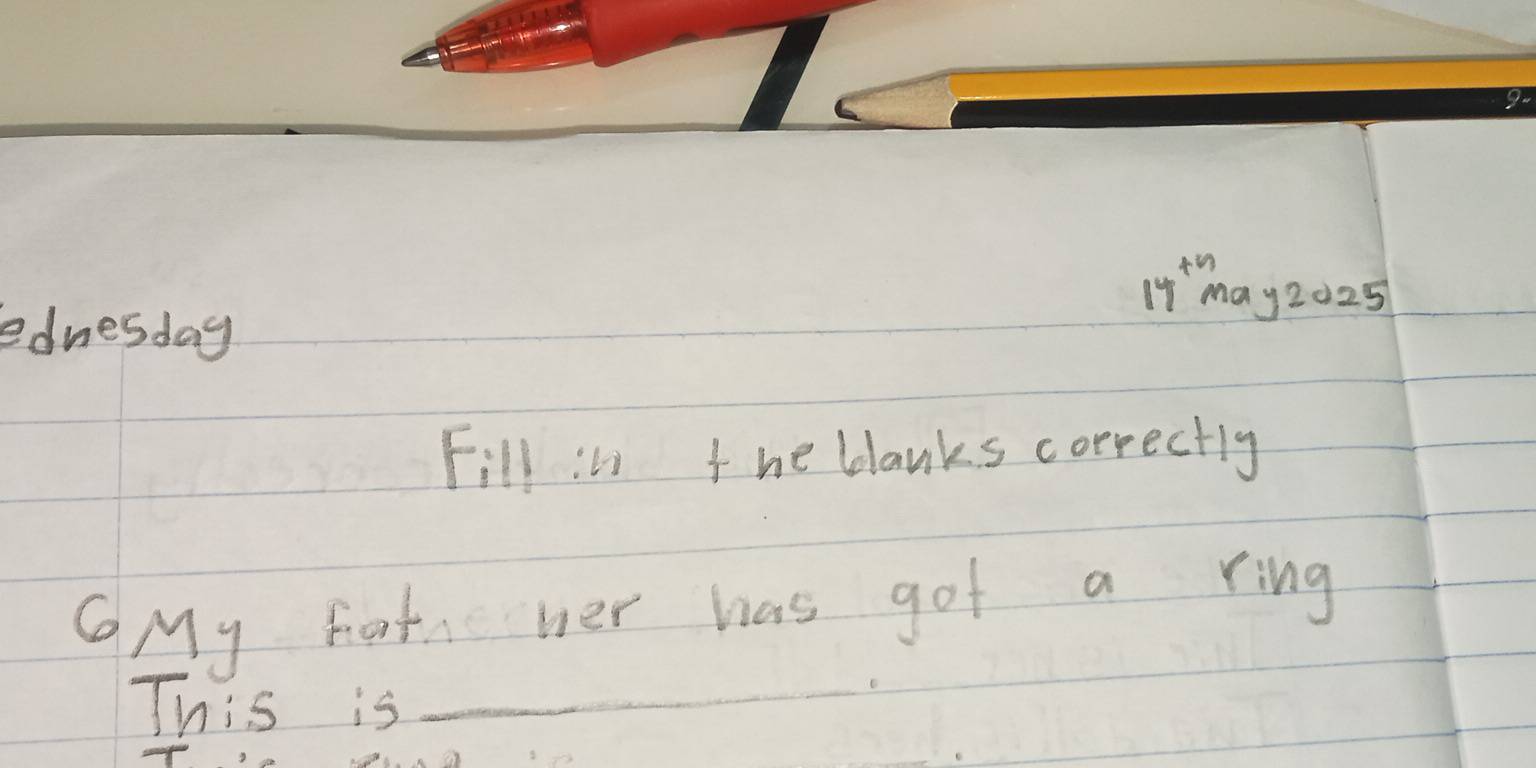 ednesday
14th May 2025
Fill in the blanks correctly
6 My father has got a ring
This is ________.
This ring is ________.
9-